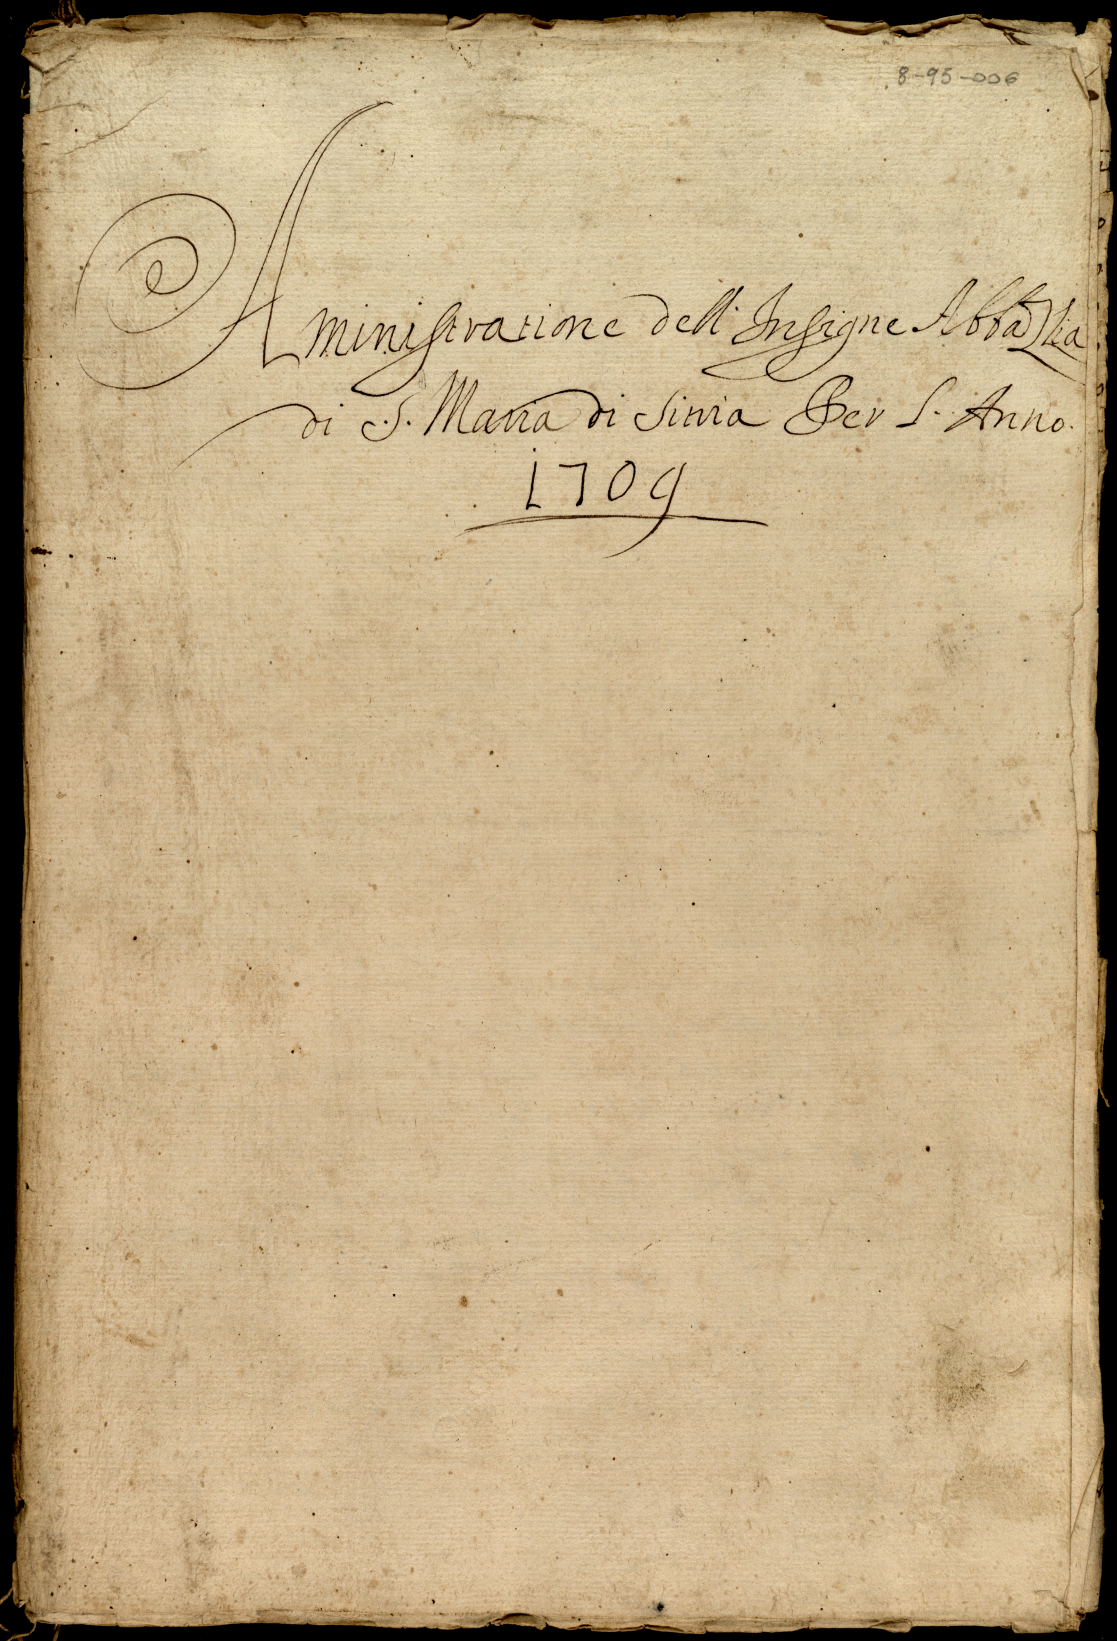 8-95-006
Aministratione dell' Insigne Abbadia
di S. Maria di Sitria Per L' Anno.
1709